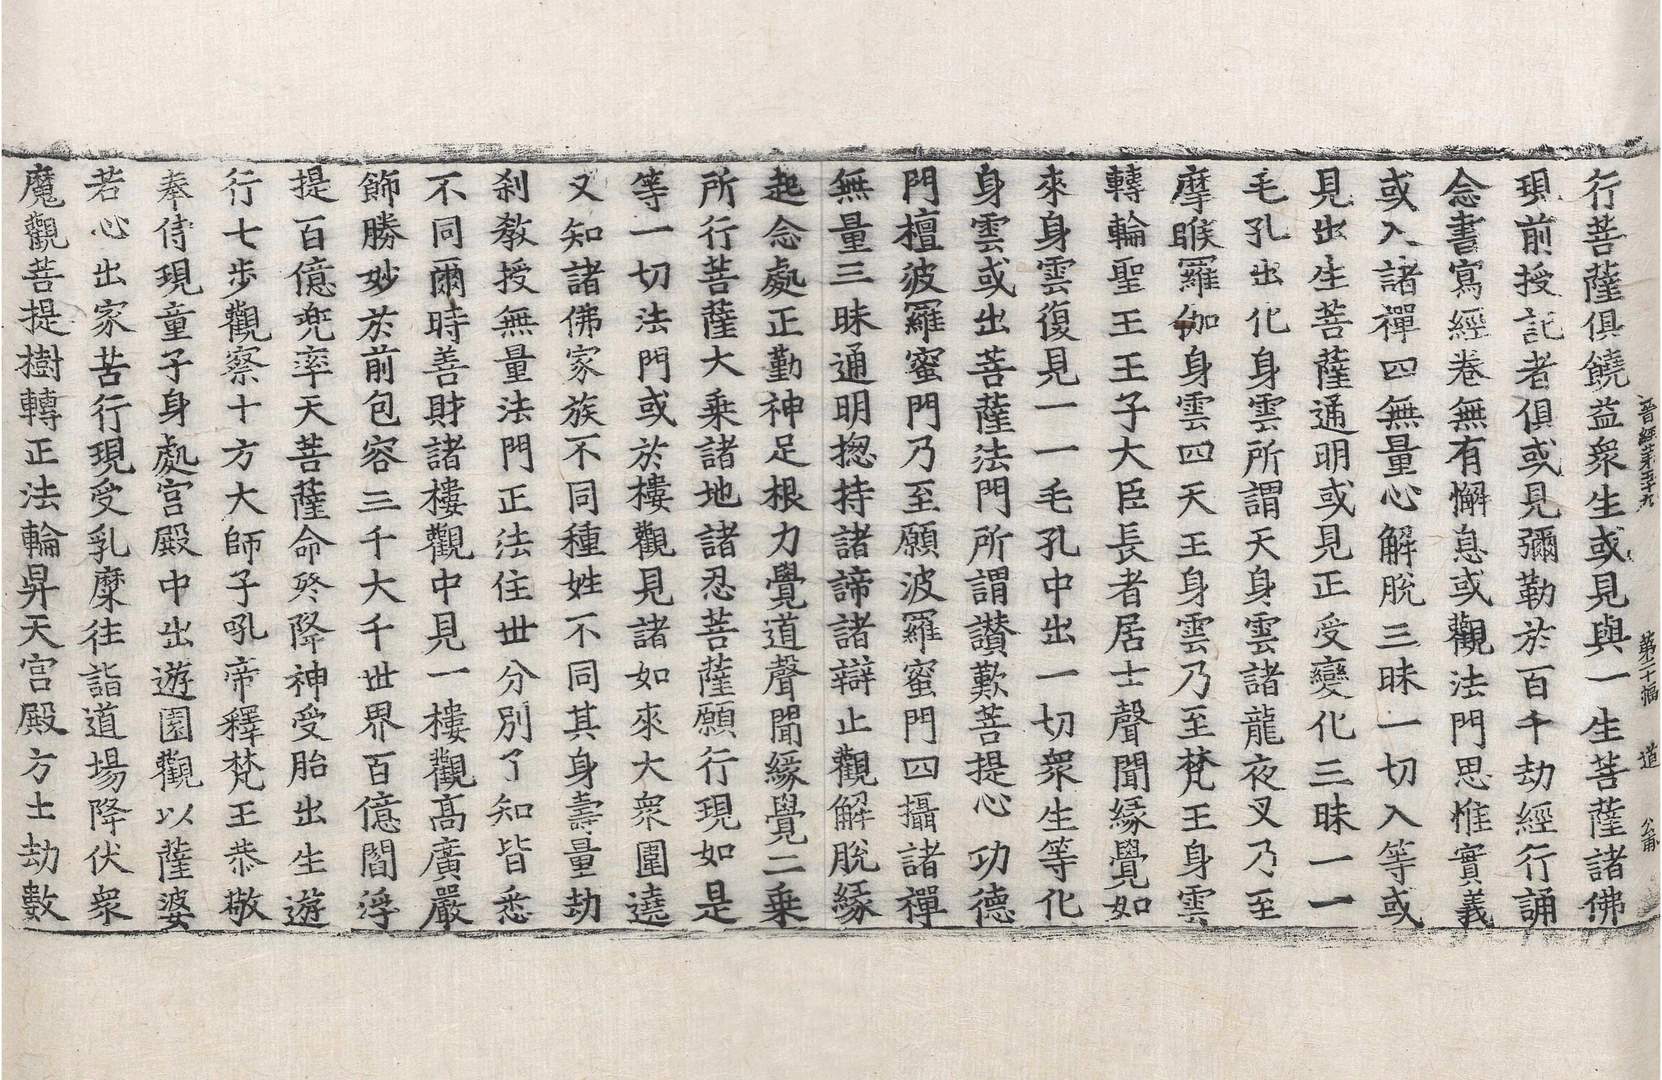 晉經第五十九 第二十幅 道 公甫
行菩薩俱饒益衆生或見與一生菩薩諸佛
現前授記者俱或見彌勒於百千劫經行誦
念書寫經卷無有懈息或觀法門思惟實義
或入諸禪四無量心解脫三昧一切入等或
見出生菩薩通明或見正受變化三昧一一
毛孔出化身雲所謂天身雲諸龍夜叉乃至
摩睺羅伽身雲四天王身雲乃至梵王身雲
轉輪聖王王子大臣長者居士聲聞緣覺如
來身雲復見一一毛孔中出一切衆生等化
身雲或出菩薩法門所謂讃歎菩提心功德
門檀波羅蜜門乃至願波羅蜜門四攝諸禪
無量三昧通明揔持諸諦諸辯止觀解脫緣
起念處正勤神足根力覺道聲聞緣覺二乗
所行菩薩大乗諸地諸忍菩薩願行現如是
等一切法門或於樓觀見諸如來大衆圍遶
又知諸佛家族不同種姓不同其身壽量劫
刹教授無量法門正法住世分別了知皆悉
不同爾時善財諸樓觀中見一樓觀高廣嚴
飾勝妙於前包容三千大千世界百億閻浮
提百億兜率天菩薩命終降神受胎出生遊
行七步觀察十方大師子吼帝釋梵王恭敬
奉侍現童子身處宮殿中出遊園觀以薩婆
若心出家苦行現受乳糜往詣道場降伏衆
魔觀菩提樹轉正法輪昇天宮殿方土劫數